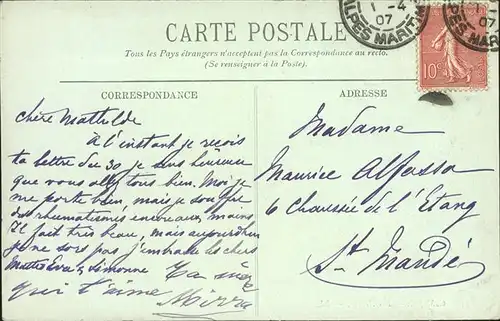 CARTE POSTALE
Tous les Pays étrangers n'acceptent pas la Correspondance au recto.
(Se renseigner à la Poste).
1 -4
07
ALPES MARITIMES
1 -4
07
ALPES MARITIMES
10c
CORRESPONDANCE
Chère Mathilde
A l'instant je reçois
ta lettre du 30, je suis heureuse
que vous allez tous bien. Moi je
me porte bien, mais je souffre
des rhumatismes encore aux mains
Il fait très beau, mais aujourd'hui
je ne sors pas j'embrasse les chers
Simonne Ta mère
qui t'aime Mirra
ADRESSE
Madame
Maurice Alfassa
6 Chaussée de l'Etang
St. Mandé